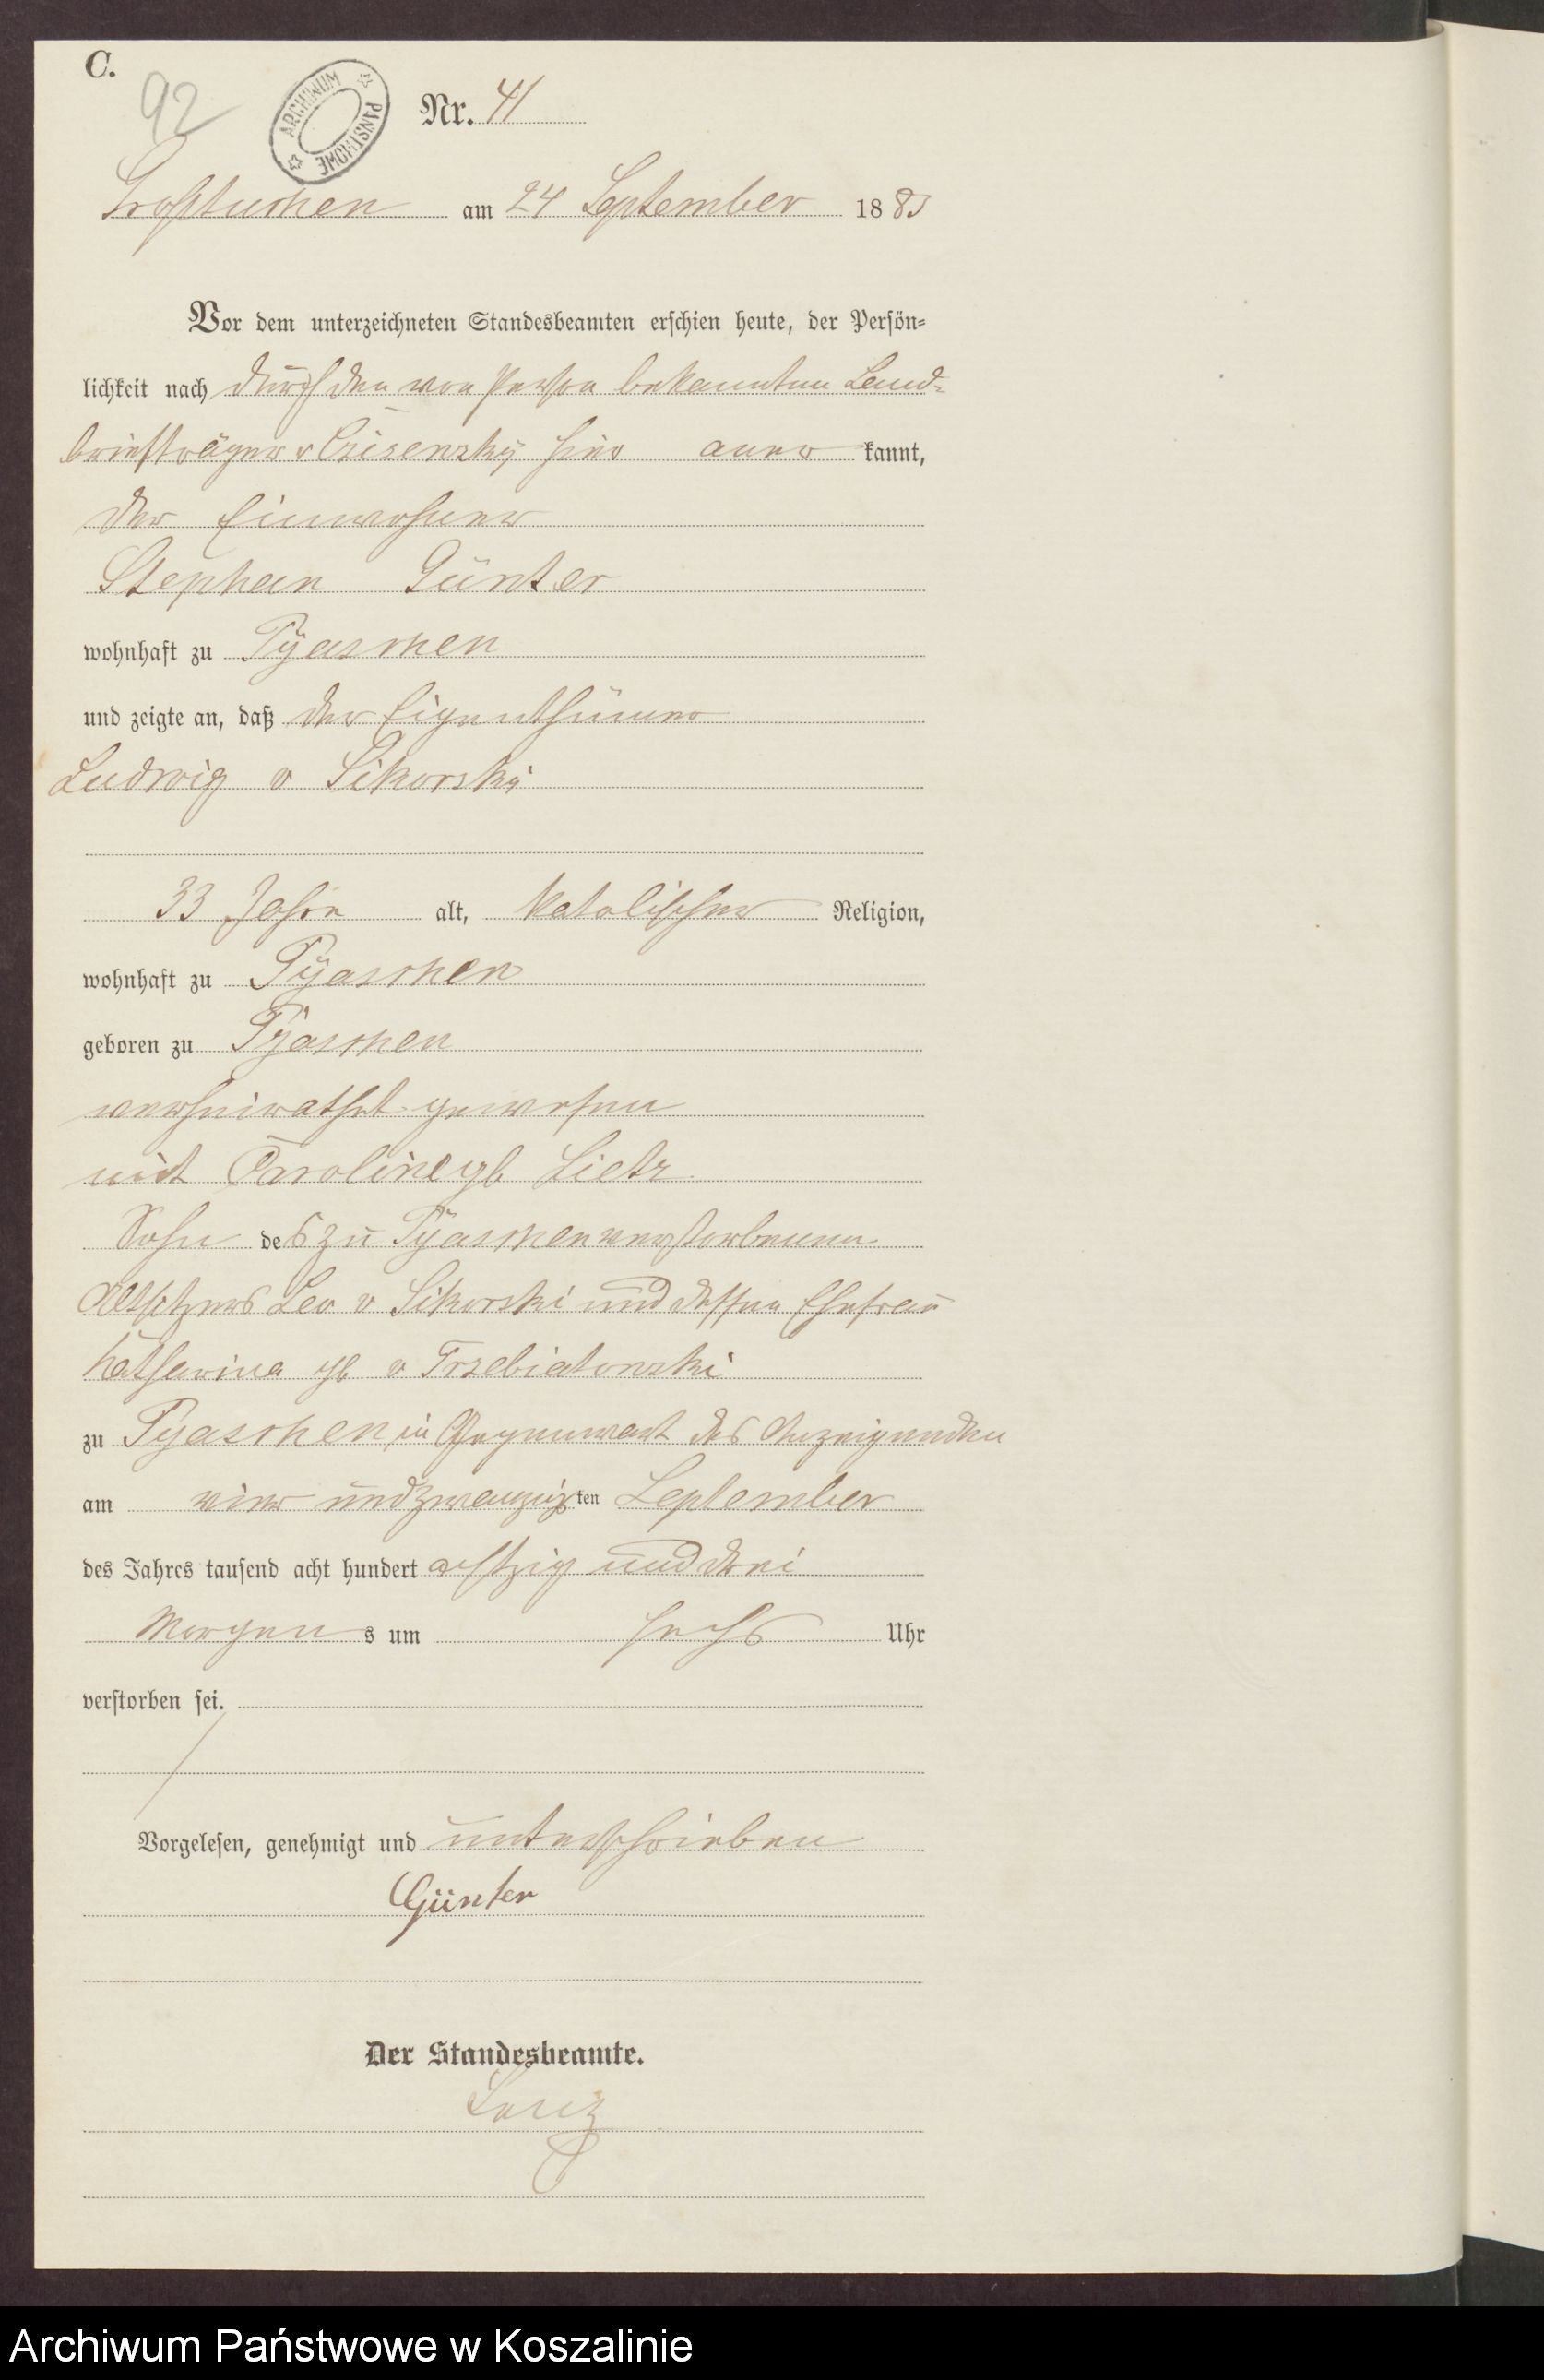 C.
92
ARCHIWUM PAŃSTWOWE
Nr. 41
Groß Tuchen am 24 September 1883
Vor dem unterzeichneten Standesbeamten erschien heute, der Persön-
lichkeit nach durch den von Person bekannten Land-
briefträger v Czisewsky hier aner kannt,
der Einwohner
Stephan Günter
wohnhaft zu Pyaschen
und zeigte an, daß der Eigenthümer
Ludwig v Sikorski
33 Jahre alt, katolischer Religion,
wohnhaft zu Pyaschen
geboren zu Pyaschen
verheirathet gewesen
mit Caroline gb Lietz
Sohn des zu Pyaschen verstorbenen
Altsitzers Leo v Sikorski und dessen Ehefrau
Katharina gb v Trzebiatowski
zu Pyaschen, in Gegenwart des Anzeigenden
am vier und zwanzigsten September
des Jahres tausend acht hundert achtzig und drei
Morgens um sechs Uhr
verstorben sei.
Vorgelesen, genehmigt und unterschrieben
Günter
Der Standesbeamte.
Archiwum Państwowe w Koszalinie